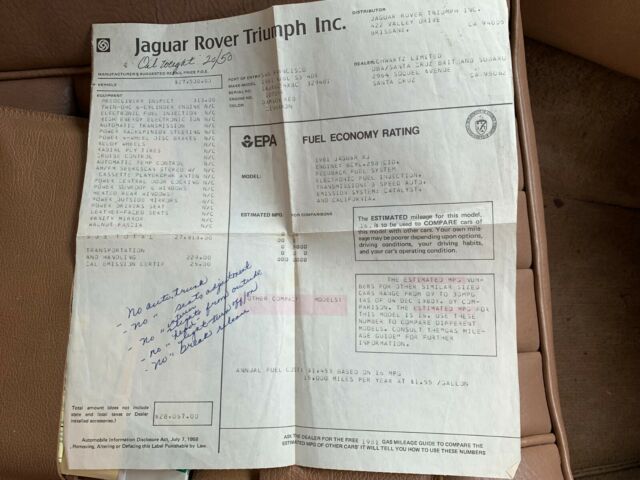 Jaguar Rover Triumph Inc.
Oil weight 20/50
MANUFACTURER'S SUGGESTED RETAIL PRICE P.O.E.
VEHICLE $27,500.00
EQUIPMENT
N/C
TWIN-OHC 6-CYLINDER ENGINE N/C
ELECTRONIC FUEL INJECTION N/C
HIGH ENERGY ELECTRONIC IGN N/C
AUTOMATIC TRANSMISSION N/C
POWER RACK&PINION STEERING N/C
POWER 4-WHEEL DISC BRAKES N/C
ALLOY WHEELS N/C
RADIAL PLY TIRES N/C
CRUISE CONTROL N/C
AUTOMATIC TEMP CONTROL N/C
AM/FM STEREO W/ N/C
CASSETTE ANTEN N/C
POWER CENTRAL DOOR LOCKING N/C
POWER SUNROOF & WINDOWS N/C
HEATED REAR WINDOWS N/C
POWER OUTSIDE MIRRORS N/C
POWER DRIVERS SEAT N/C
LEATHER-FACED SEATS N/C
VANITY MIRROR N/C
WALNUT FASCIA N/C
TRANSPORTATION
AND HANDLING
CAL EMISSION CERTIF
- no auto. trunk
- no " seats adjustment
- no "
- no " lights from outside
- no " light turn off/on
- no " brake release
Total amount (does not include
state and local taxes or Dealer
installed accessories.)
$28,067.00
Automobile Information Disclosure Act, July 7, 1958
Removing, Altering or Defacing this Label Punishable by Law.
DISTRIBUTOR
JAGUAR ROVER TRIUMPH INC.
422 VALLEY DRIVE
BRISBANE, CA 94005
DEALER
SCHWARTZ LIMITED
DBA/SANTA CRUZ DATSUN AND SUBARU
2964 SOQUEL AVENUE
SANTA CRUZ CA 95062
PORT OF ENTRY SAN FRANCISCO
MAKE-MODEL
SERIAL NO.
ENGINE NO.
COLOR
EPA FUEL ECONOMY RATING
MODEL:
1981 JAGUAR XJ
FEEDBACK FUEL SYSTEM
ELECTRONIC FUEL INJECTION,
TRANSMISSION: 3 SPEED AUTO.
EMISSION SYSTEM: CATALYST,
AND CALIFORNIA.
ESTIMATED MPG FOR COMPARISONS
The ESTIMATED mileage for this model
is to be used to COMPARE cars of
this model with other cars. Your own mile-
age may be poorer depending upon options,
driving conditions, your driving habits,
and your car's operating condition.
OTHER COMPACT MODELS:
THE ESTIMATED MPG NUM-
BERS FOR OTHER SIMILAR SIZED
CARS RANGE FROM 09 TO MPG
(AS OF 04 DEC 1980). BY COM-
PARISON, THE ESTIMATED MPG FOR
THIS MODEL IS 16. USE THESE
NUMBER TO COMPARE DIFFERENT
MODELS. CONSULT THE "GAS MILE-
AGE GUIDE" FOR FURTHER
INFORMATION.
ANNUAL FUEL COST: BASED ON 16 MPG
15,000 MILES PER YEAR AT $1.55 /GALLON
ASK THE DEALER FOR THE FREE 1981 GAS MILEAGE GUIDE TO COMPARE THE
ESTIMATED MPG OF OTHER CARS IT WILL TELL YOU HOW TO USE THESE NUMBERS